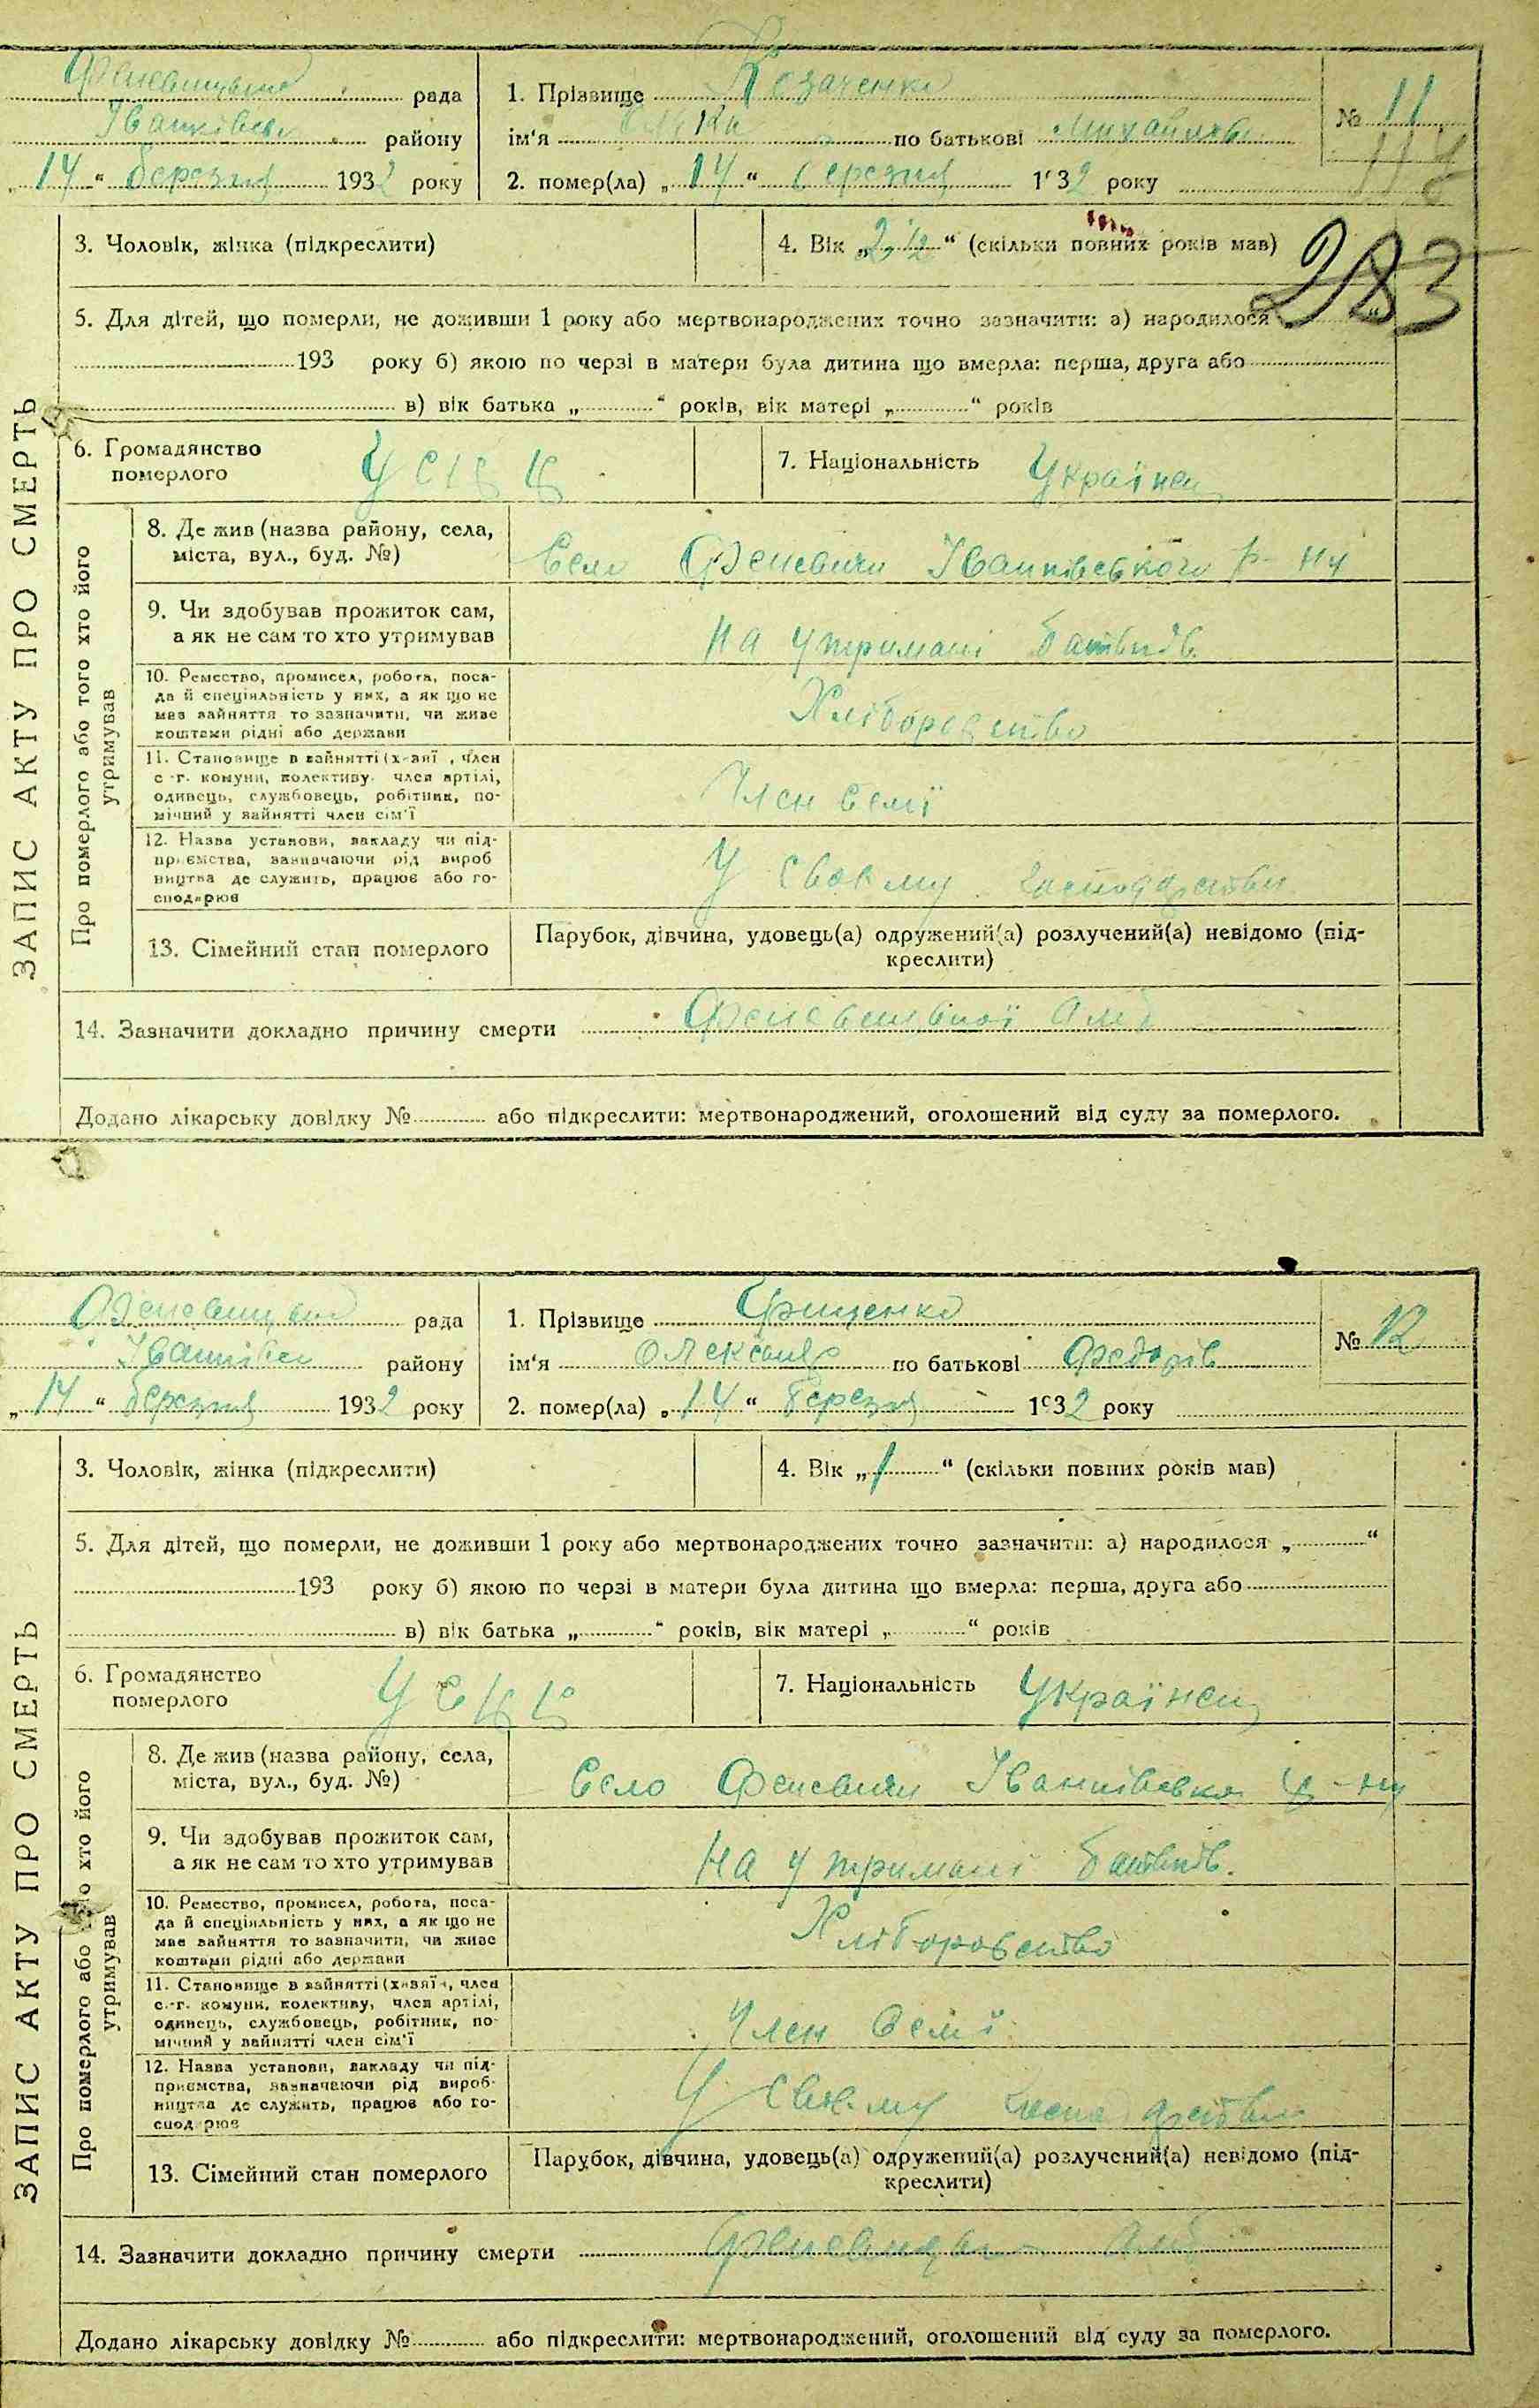 рада
1. Прізвище Козаченко
№ 11
району
ім'я по батькові
„14“ березня 1932 року
2. помер(ла) „14“ березня 1932 року
3. Чоловік, жінка (підкреслити)
4. Вік „2 1/2“ (скільки повних років мав)
283
5. Для дітей, що померли, не доживши 1 року або мертвонароджених точно зазначити: а) народилося
193 року б) якою по черзі в матери була дитина що вмерла: перша, друга або
в) вік батька „ “ років, вік матері „ “ років
6. Громадянство
померлого
7. Національність Українец
ЗАПИС АКТУ ПРО СМЕРТЬ
Про померлого або того хто його
утримував
8. Де жив (назва району, села,
міста, вул., буд. №)
Село Феневичи Іванківського р-ну
9. Чи здобував прожиток сам,
а як не сам то хто утримував
на утримані батьків
10. Ремество, промисел, робота, поса-
да й спеціяльність у них, а як що не
має зайняття то зазначити, чи живе
коштами рідні або держави
Хліборобство
11. Становище в зайнятті (х-зяї , член
с.-г. комуни, колективу, член артілі,
одинець, службовець, робітник, по-
мічний у зайнятті член сім'ї
Член семї
12. Назва установи, закладу чи під-
приємства, зазначаючи рід вироб
ництва де служить, працює або го-
сподарює
У своєму господарстви
13. Сімейний стан померлого
Парубок, дівчина, удовець(а) одружений(а) розлучений(а) невідомо (під-
креслити)
14. Зазначити докладно причину смерти
Додано лікарську довідку № або підкреслити: мертвонароджений, оголошений від суду за померлого.
рада
1. Прізвище Грищенко
№ 12
району
ім'я Олександр по батькові Федорів
„14“ березня 1932 року
2. помер(ла) „14“ березня 1932 року
3. Чоловік, жінка (підкреслити)
4. Вік „1“ (скільки повних років мав)
5. Для дітей, що померли, не доживши 1 року або мертвонароджених точно зазначити: а) народилося „ “
193 року б) якою по черзі в матери була дитина що вмерла: перша, друга або
в) вік батька „ “ років, вік матері „ “ років
6. Громадянство
померлого
7. Національність Українец
ЗАПИС АКТУ ПРО СМЕРТЬ
Про померлого або хто його
утримував
8. Де жив (назва району, села,
міста, вул., буд. №)
Село Феневичи
9. Чи здобував прожиток сам,
а як не сам то хто утримував
на утримані батьків.
10. Ремество, промисел, робота, поса-
да й спеціяльність у них, а як що не
має зайняття то зазначити, чи живе
коштами рідні або держави
Хліборобство
11. Становище в зайнятті (х-зяї , член
с.-г. комуни, колективу, член артілі,
одинець, службовець, робітник, по-
мічний у зайнятті член сім'ї
Член семї
12. Назва установи, закладу чи під-
приємства, зазначаючи рід вироб-
ництва де служить, працює або го-
сподарює
У своєму господарстви
13. Сімейний стан померлого
Парубок, дівчина, удовець(а) одружений(а) розлучений(а) невідомо (під-
креслити)
14. Зазначити докладно причину смерти
Додано лікарську довідку № або підкреслити: мертвонароджений, оголошений від суду за померлого.